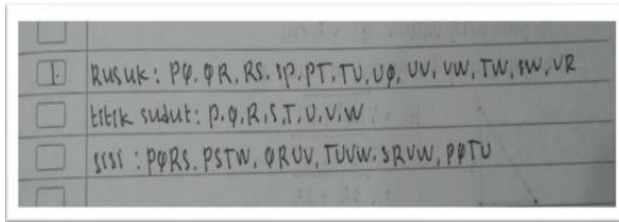 1. Rusuk : PQ. QR. RS. SP. PT. TU, UQ, UV, VW, TW, SW, VR
titik sudut : P. Q, R, S, T, U, V, W
sisi : PQRS. PSTW, QRUV, TUVW. SRVW, PQTU